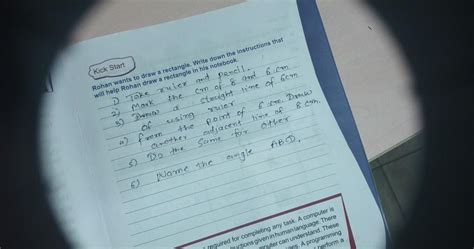 Kick Start
Rohan wants to draw a rectangle. Write down the instructions that
will help Rohan draw a rectangle in his notebook.
1) Take ruler and pencil.
2) Mark the cm of 8 and 6 cm
3) Draw a straight line of 6cm
of using ruler
4) from the point of 6 cm. Draw
another adjacent line of 8 cm.
5) Do the same for other
6) Name the angle ABD.
required for completing any task. A computer is
uctions given in human language. There
puter can understand. These
A programming
perform a